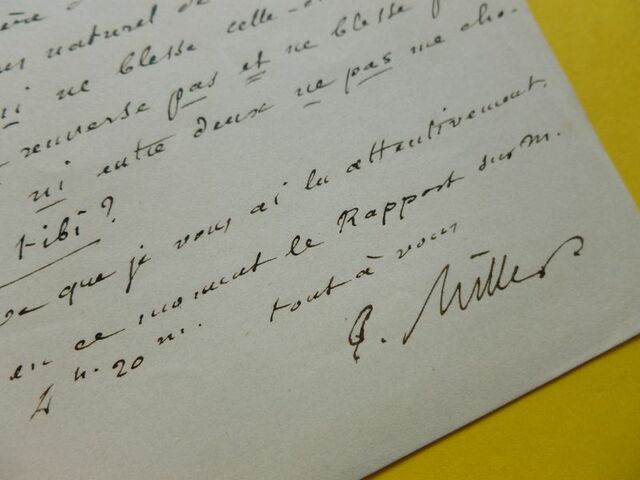 naturel de
ni ne blesse celle-
renverse pas et ne blesse
ni entre deux ne pas me cho.
tibi ?
que je vous ai lu attentivement.
en ce moment le Rapport sur M.
4 h. 20 m. tout à vous
E. Miller